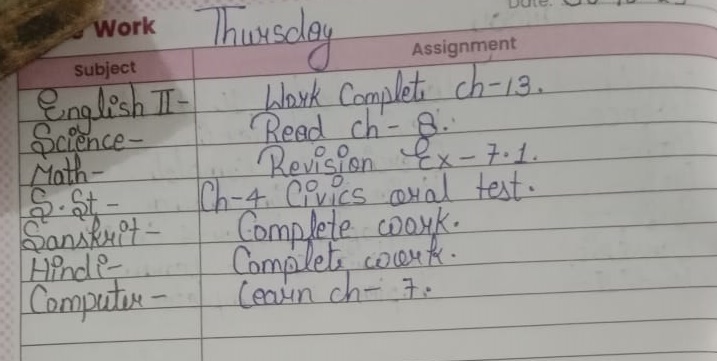 Work Thursday
Subject Assignment
English II- Work Complete ch-13.
Science- Read ch- 8.
Math- Revision Ex-7.1.
S.St- Ch-4 Civics oral test.
Sanskrit- Complete work.
Hindi- Complete work.
Computer- Learn ch- 7.